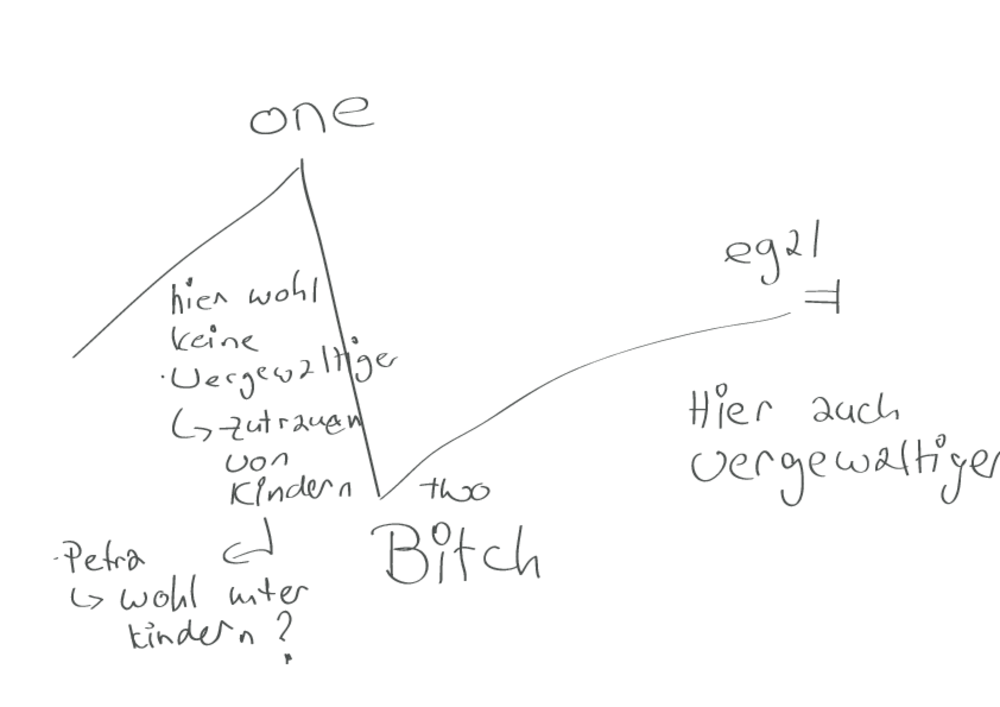 one
hier wohl
keine
·Vergewaltiger
↳ zutrauen
von
Kindern
two
Bitch
·Petra
↳ wohl unter
kindern?
egal
Hier auch
vergewaltiger